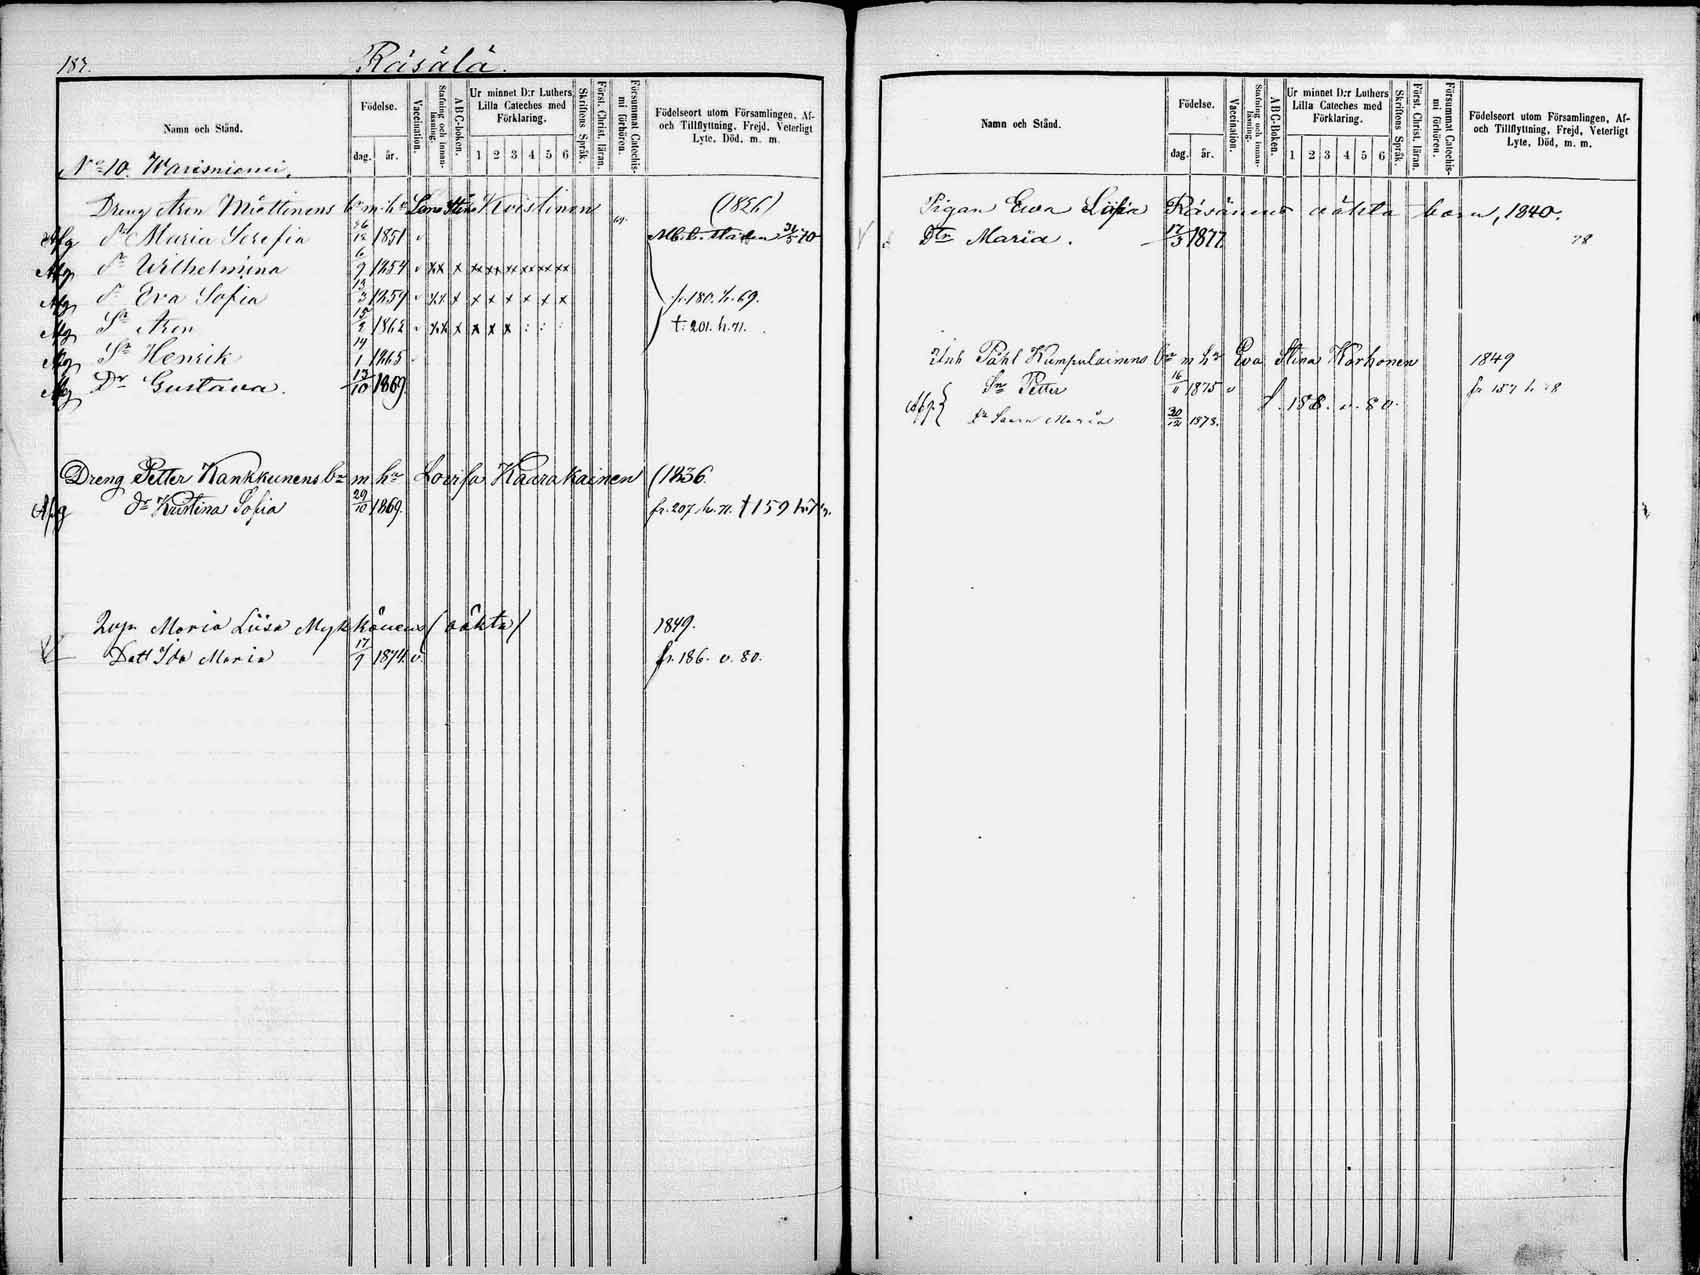 187.
Räsälä.
Namn och Stånd.
Födelse.
dag. år.
Vaccination.
Stafning och innanläsning.
A B C-boken.
Ur minnet D:r Luthers Lilla Cateches med Förklaring.
1 2 3 4 5 6
Skriftens Språk.
Först. Christ. läran.
Försummat Catechismi förhören.
Födelseort utom Församlingen, Af- och Tillflyttning, Frejd, Veterligt Lyte, Död, m. m.
No 10. Warisniemi.
Dreng Aron Miettinens bn m. hu Lena Stina Koistinen (1826)
Afg dr Maria Serefia 26/12 1851 v
Afg dr Wilhelmina 6/9 1854 v xx x xx xx x x x xx
Afg dr Eva Sofia 13/3 1859 v xx x x x x x x x fr. 180. h. 69.
Afg Sn Aron 15/2 1862 v xx x x x x : : : t: 201. h. 71.
Afg Sn Henrik 14/1 1865 v
Afg Dr Gustava. 13/10 1869.
Dreng Petter Kankkunens bn m hu Lovisa Kaarakainen (1836.
Afg dr Kristina Sofia 29/10 1869. fr. 207 h. 71. † 159
Maria Liisa Mykkänens (oäkta) 1849.
Dott Ida Maria 17/9 1874. v. fr. 186. v. 80.
Namn och Stånd.
Födelse.
dag. år.
Vaccination.
Stafning och innanläsning.
A B C-boken.
Ur minnet D:r Luthers Lilla Cateches med Förklaring.
1 2 3 4 5 6
Skriftens Språk.
Först. Christ. läran.
Försummat Catechismi förhören.
Födelseort utom Församlingen, Af- och Tillflyttning, Frejd, Veterligt Lyte, Död, m. m.
Pigan Ewa Liisa Räsänens oäkta barn, 1840.
Dtr Maria. 17/3 1877. 78
Inh Påhl Kumpulainens bn m hu Eva Stina Korhonen 1849
Sn Petter 16/11 1875 v fr 157 h 78
Afg. } t. 188. v. 80.
dr Saara Maria 30/12 1878.